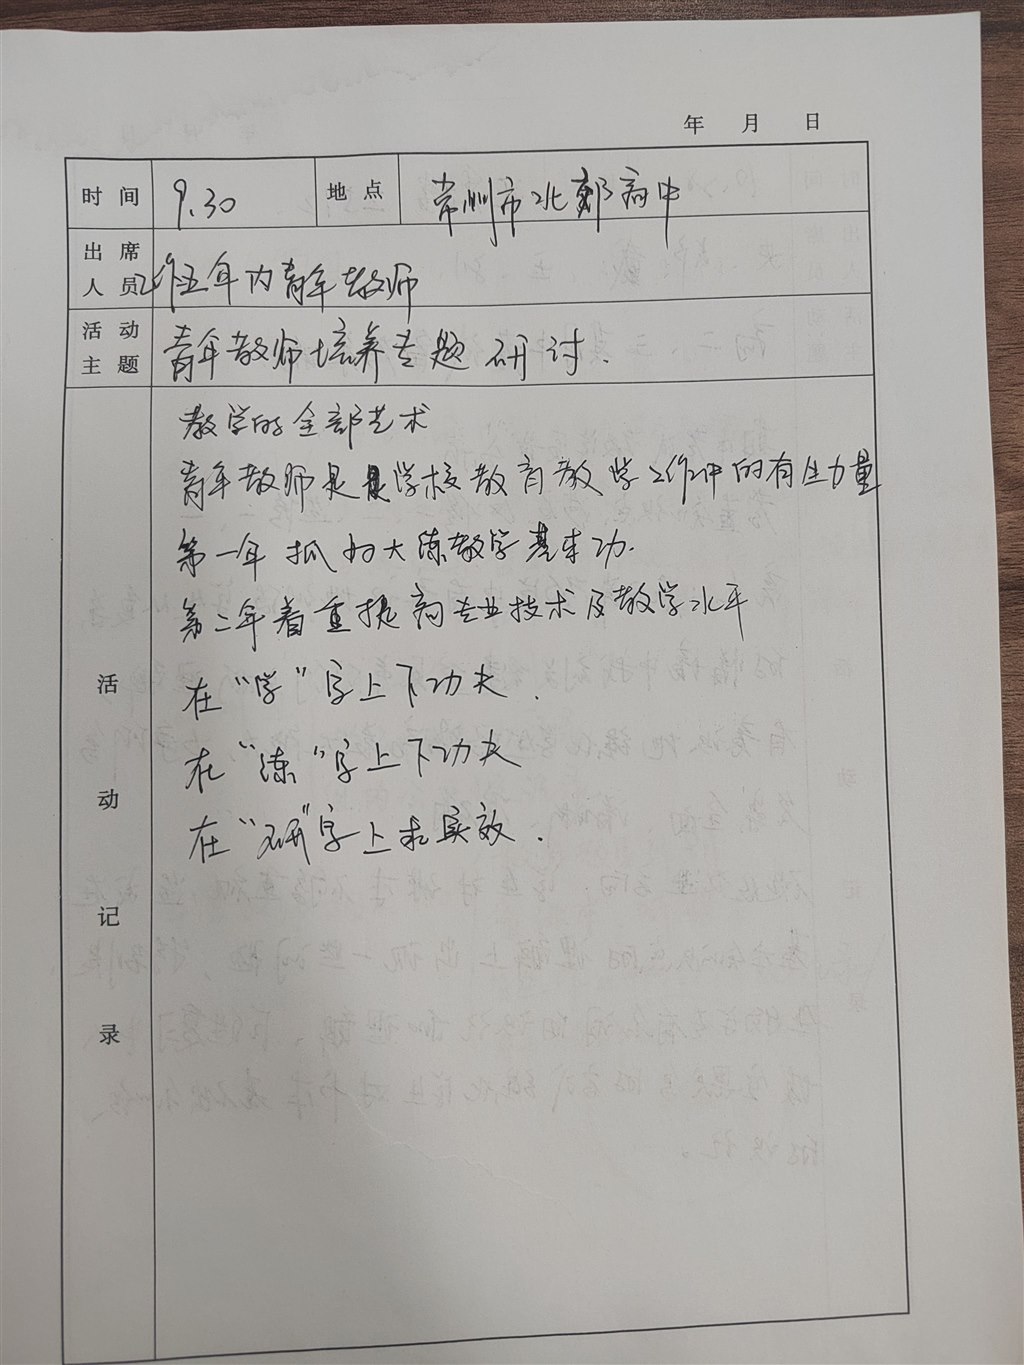 年 月 日
时间 9.30 地点 常州市北郊高中
出席人员 工作五年内青年教师
活动主题 青年教师培养专题研讨.
活动记录
教学的全部艺术
青年教师是学校教育教学工作中的有生力量
第一年抓 大练教学基本功.
第二年着重提高专业技术及教学水平
在“学”字上下功夫.
在“练”字上下功夫
在“研”字上求实效.